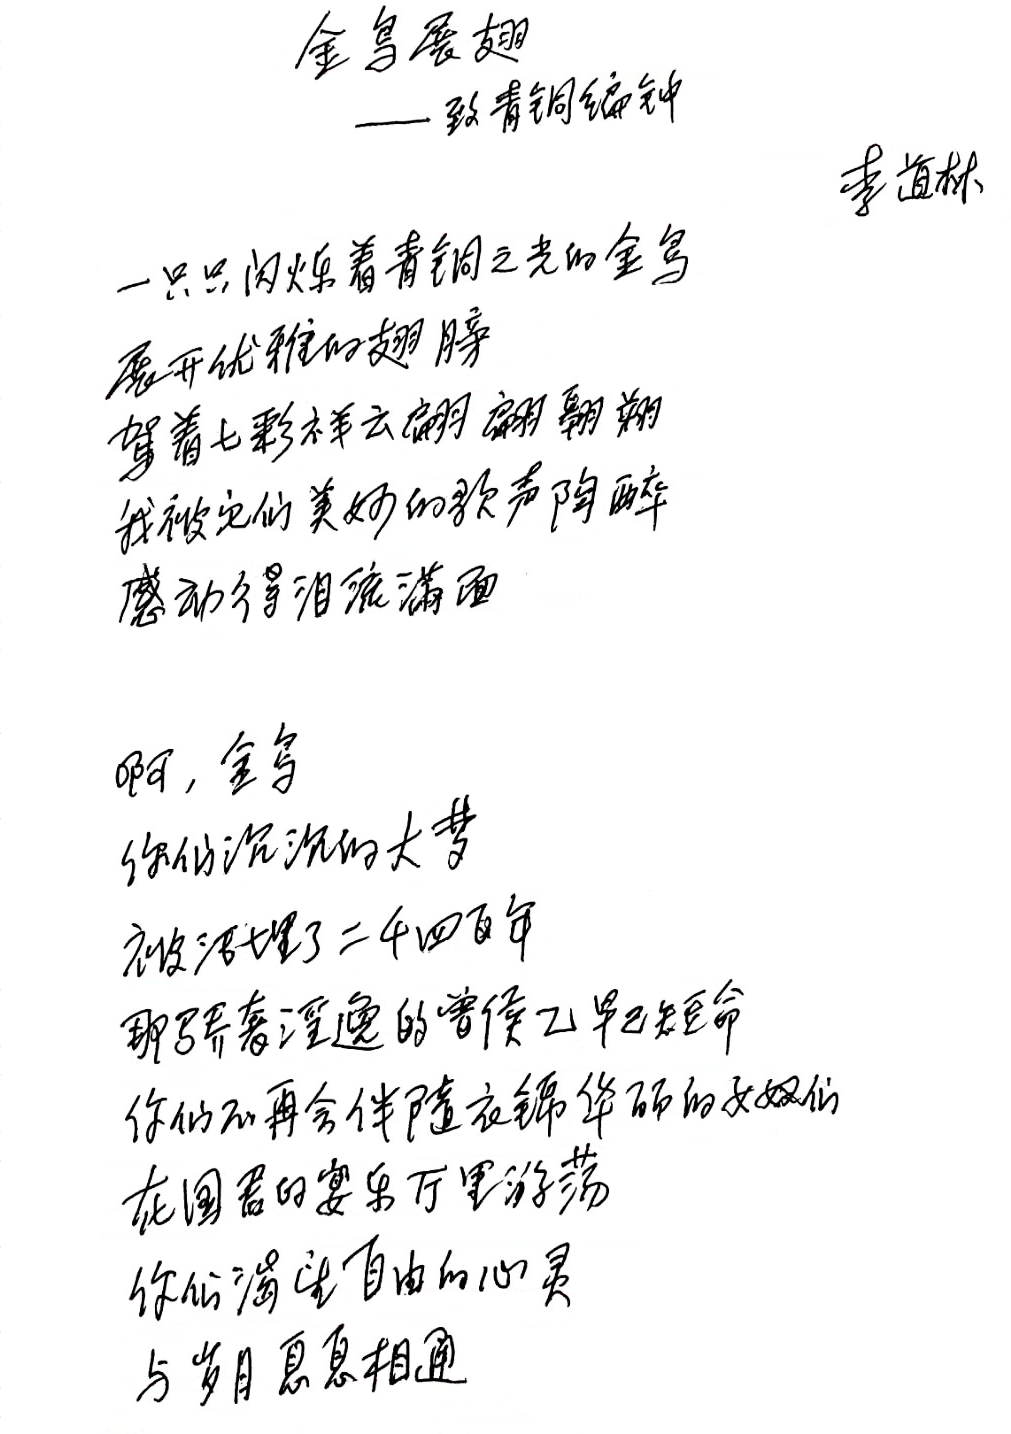 金鸟展翅
——致青铜编钟
李道林
一只只闪烁着青铜之光的金鸟
展开优雅的翅膀
驾着七彩祥云翩翩翱翔
我被它们美妙的歌声陶醉
感动得泪流满面
啊，金鸟
你们沉沉的大梦
被活埋了二千四百年
那骄奢淫逸的曾侯乙早已短命
你们不再会伴随衣锦华丽的女奴们
在国君的宴乐厅里游荡
你们渴望自由的心灵
与岁月息息相通